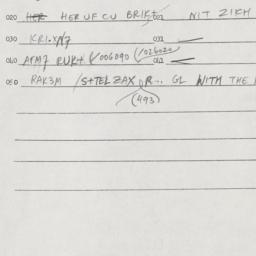 020 HER HER UF CU BRIK+ 021 NIT ZIKH
030 KRI.YN7 031
040 ATM7 RUK+ √006090 (√026020) 041
050 RAK3M /S+TEL ZAX OR... GL WITH THE
(493)